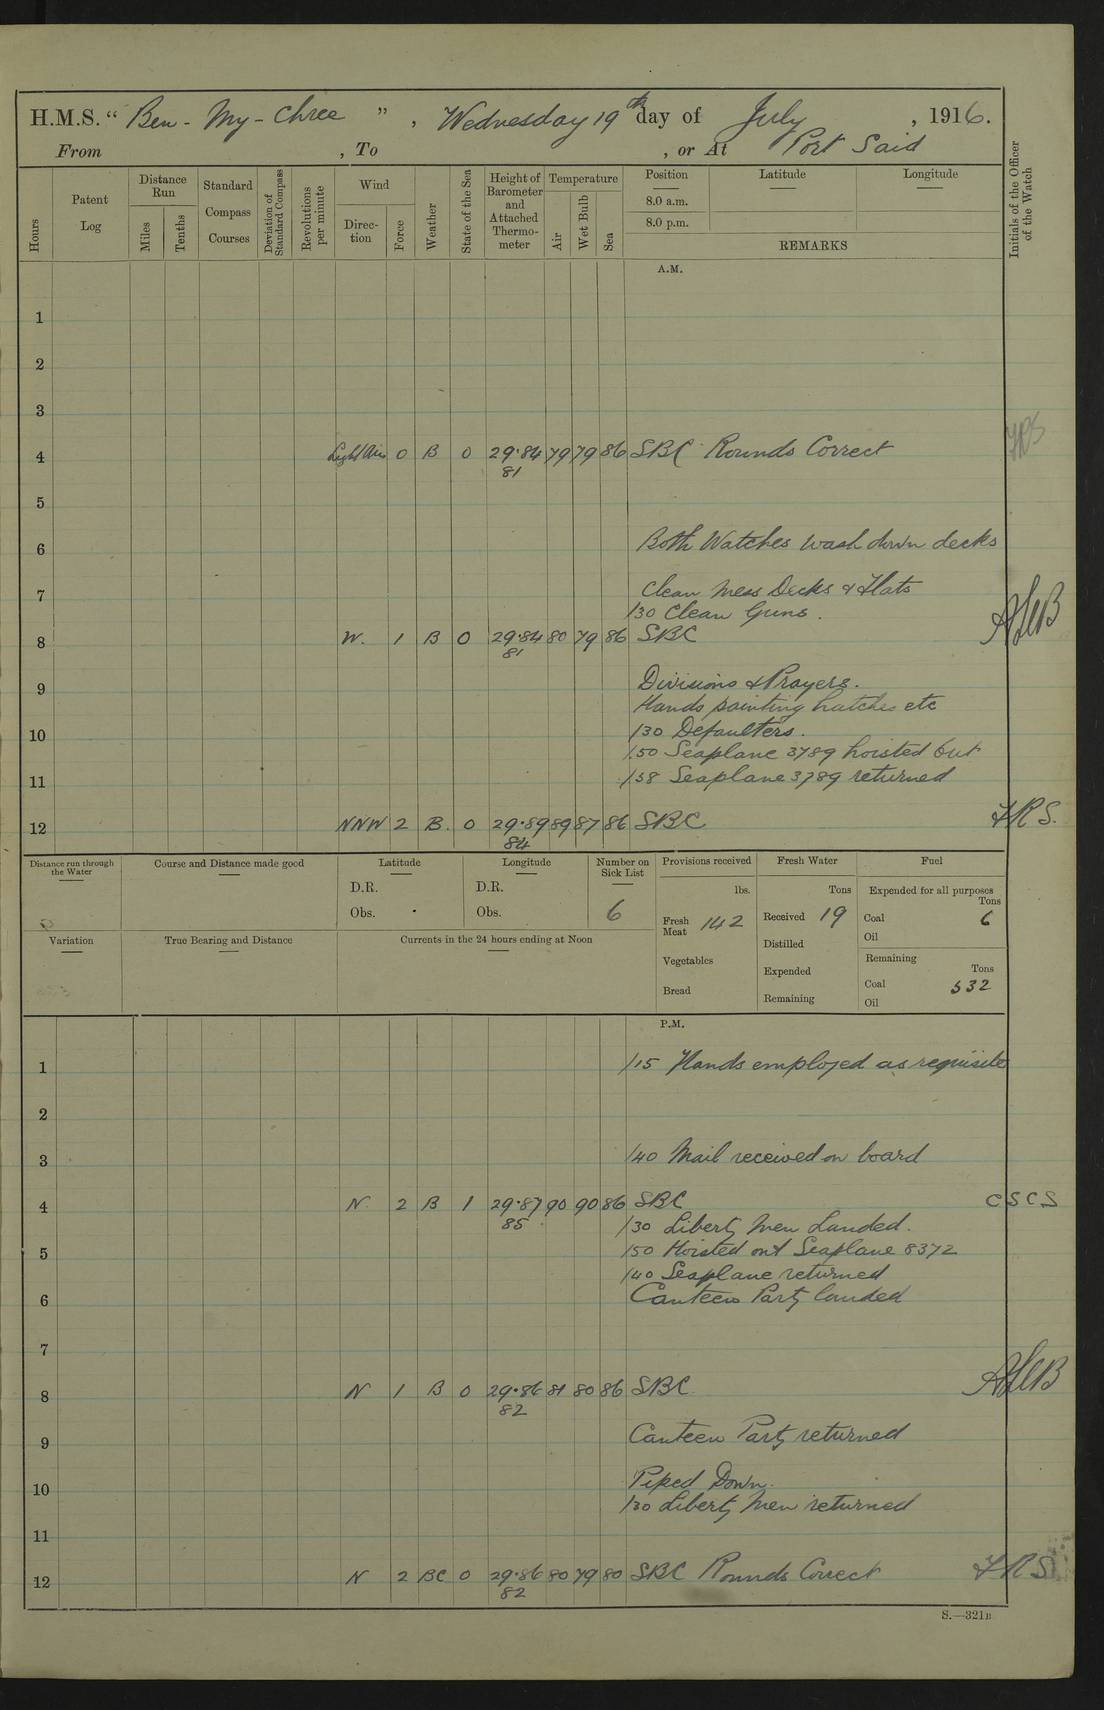 H.M.S. “ Ben-My-Chree ” , Wednesday 19th day of July , 1916.
From , To , or At Port Said
Hours
Patent Log
Distance Run
Miles
Tenths
Standard Compass Courses
Deviation of Standard Compass
Revolutions per minute
Wind
Direc-tion
Force
Weather
State of the Sea
Height of Barometer and Attached Thermo-meter
Temperature
Air
Wet Bulb
Sea
Position
8.0 a.m.
8.0 p.m.
Latitude
Longitude
REMARKS
Initials of the Officer of the Watch
A.M.
1
2
3
4 Light Airs 0 B 0 29.84 79 79 86 SBC Rounds Correct
81
5
6 Both Watches wash down decks
7 Clean Mess Decks & Flats
/30 Clean Guns.
8 W. 1 B 0 29.84 80 79 86 SBC
81
9 Divisions & Prayers.
Hands painting hatches etc
10 /30 Defaulters.
/50 Seaplane 3789 hoisted out
11 /58 Seaplane 3789 returned
12 NNW 2 B. 0 29.89 89 87 86 SBC FRS.
84
Distance run through the Water
Course and Distance made good
Latitude
D.R.
Obs.
Longitude
D.R.
Obs.
Number on Sick List
6
Provisions received
lbs.
Fresh Meat 142
Vegetables
Bread
Fresh Water
Tons
Received 19
Distilled
Expended
Remaining
Fuel
Expended for all purposes
Tons
Coal 6
Oil
Remaining
Tons
Coal 532
Oil
Variation
True Bearing and Distance
Currents in the 24 hours ending at Noon
P.M.
1 /15 Hands employed as requisite
2
3 /40 Mail received on board
4 N. 2 B 1 29.87 90 90 86 SBC CSCS
85
/30 Liberty Men Landed.
5 /50 Hoisted out Seaplane 8372
/40 Seaplane returned
6 Canteen Party landed
7
8 N 1 B 0 29.86 81 80 86 SBC
82
9 Canteen Party returned
10 Piped Down.
/30 Liberty Men returned
11
12 N 2 BC 0 29.86 80 79 80 SBC Rounds Correct FRS
82
S.—321B